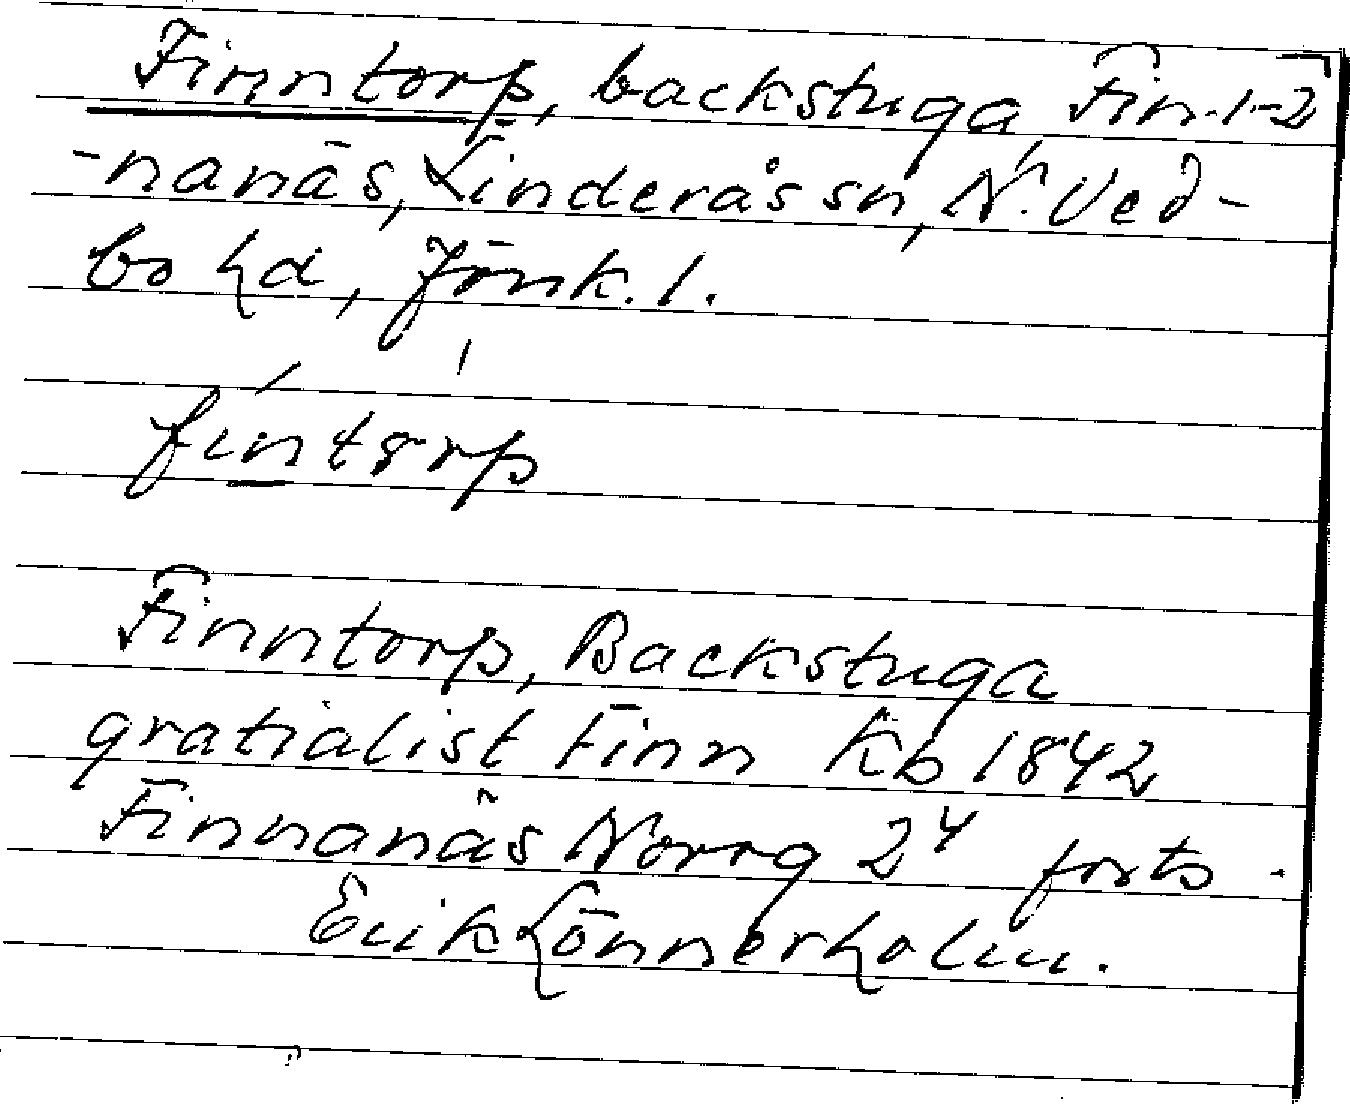 Finntorp, backstuga Fin- 1-2
-nanäs, Linderås sn, N. Ved-
bo hd, Jönk. l.
Finntorp, Backstuga
gratialist Finn Kb 1842
Finnanäs Norrg 2 4 forts.
Erik Lönnerholm.